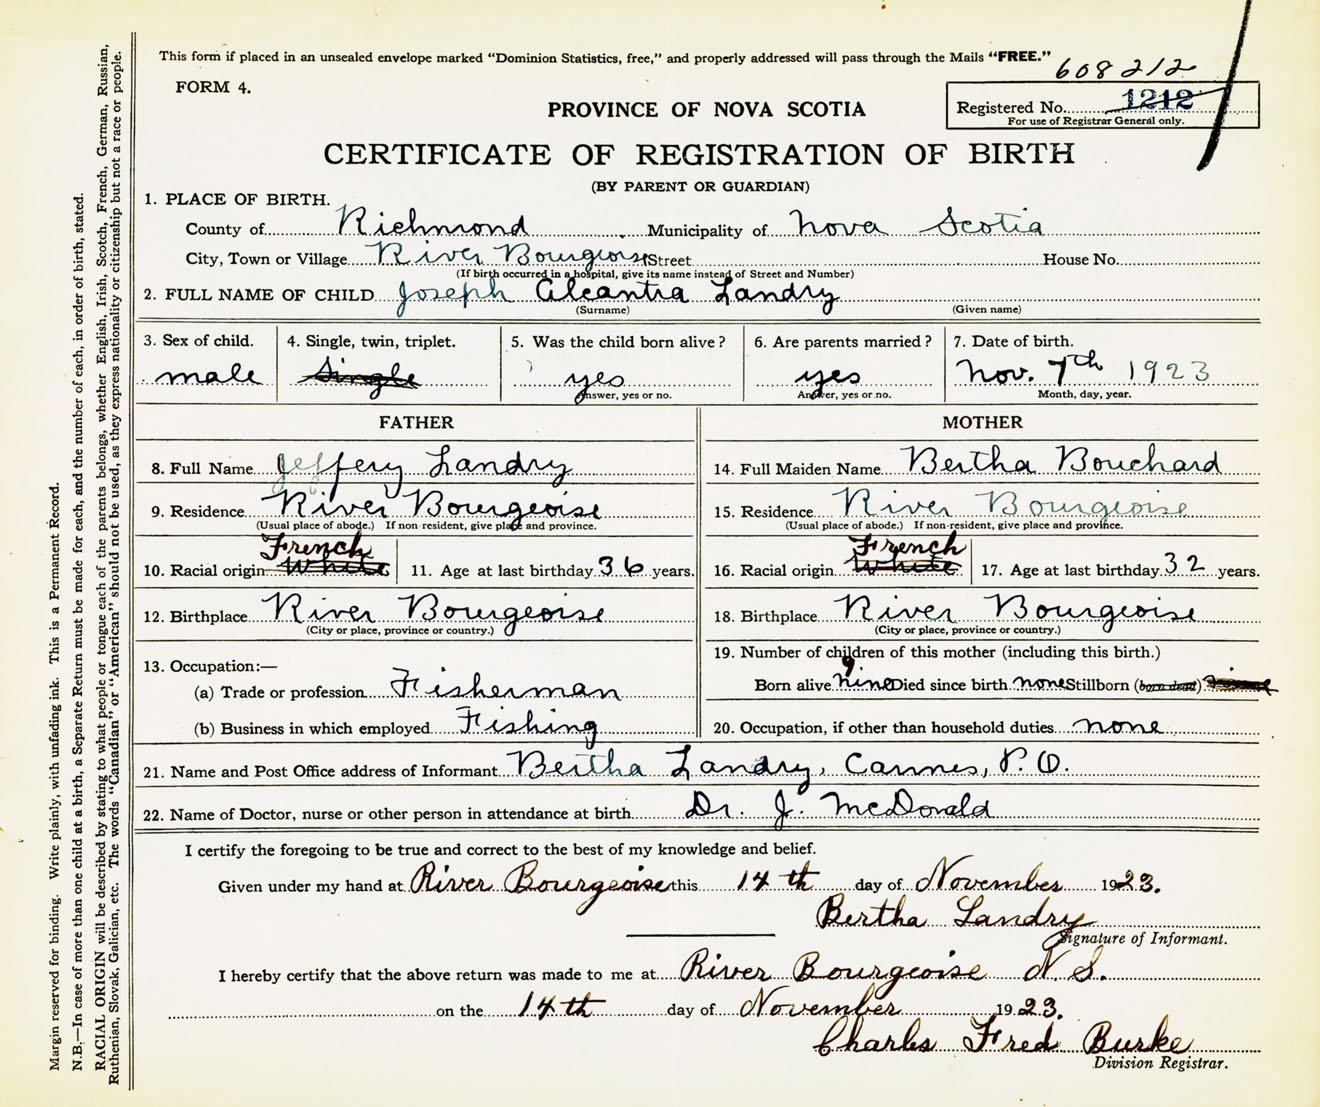 This form if placed in an unsealed envelope marked “Dominion Statistics, free,” and properly addressed will pass through the Mails “FREE.”
608212
FORM 4.
Registered No. 1212
For use of Registrar General only.
PROVINCE OF NOVA SCOTIA
CERTIFICATE OF REGISTRATION OF BIRTH
(BY PARENT OR GUARDIAN)
1. PLACE OF BIRTH.
County of Richmond Municipality of Nova Scotia
City, Town or Village River Bourgeoise Street House No.
(If birth occurred in a hospital, give its name instead of Street and Number)
2. FULL NAME OF CHILD Joseph Alcantra Landry
(Surname) (Given name)
3. Sex of child. 4. Single, twin, triplet. 5. Was the child born alive? 6. Are parents married? 7. Date of birth.
male Single yes yes Nov. 7th 1923
Answer, yes or no. Answer, yes or no. Month, day, year.
FATHER MOTHER
8. Full Name Jeffery Landry 14. Full Maiden Name Bertha Bouchard
9. Residence River Bourgeoise 15. Residence River Bourgeoise
(Usual place of abode.) If non-resident, give place and province. (Usual place of abode.) If non-resident, give place and province.
French French
10. Racial origin White 11. Age at last birthday 36 years. 16. Racial origin White 17. Age at last birthday 32 years.
12. Birthplace River Bourgeoise 18. Birthplace River Bourgeoise
(City or place, province or country.) (City or place, province or country.)
13. Occupation:— 19. Number of children of this mother (including this birth.)
9
(a) Trade or profession Fisherman Born alive nine Died since birth none Stillborn (born dead)
(b) Business in which employed Fishing 20. Occupation, if other than household duties none
21. Name and Post Office address of Informant Bertha Landry, Cannes, P.O.
22. Name of Doctor, nurse or other person in attendance at birth Dr. J. McDonald
I certify the foregoing to be true and correct to the best of my knowledge and belief.
Given under my hand at River Bourgeoise this 14th day of November 1923.
Bertha Landry
Signature of Informant.
I hereby certify that the above return was made to me at River Bourgeoise N.S.
on the 14th day of November 1923.
Charles Fred Burke
Division Registrar.
Margin reserved for binding. Write plainly, with unfading ink. This is a Permanent Record.
N.B.—In case of more than one child at a birth, a Separate Return must be made for each, and the number of each, in order of birth, stated.
RACIAL ORIGIN will be described by stating to what people or tongue each of the parents belongs, whether English, Irish, Scotch, French, German, Russian,
Ruthenian, Slovak, Galician, etc. The words “Canadian” or “American” should not be used, as they express nationality or citizenship but not a race or people.